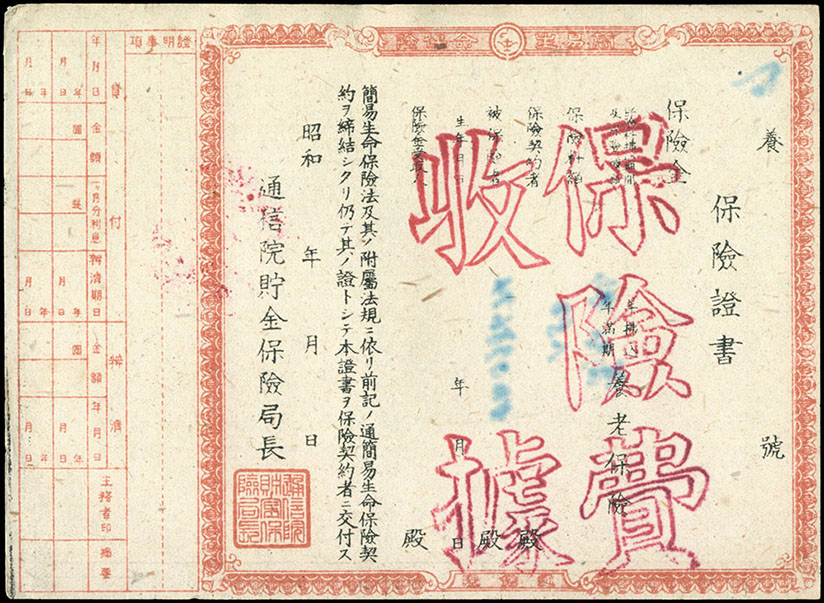 簡易生命保險
養 號
保險證書
保險金
年拂込
年滿期
養老保險
保險料額
保險契約者 殿
被保險者 殿
生年月日 年 月 日
保險金受取人 殿
簡易生命保險法及其ノ附屬法規ニ依リ前記ノ通簡易生命保險契
約ヲ締結シタリ仍テ其ノ證トシテ本證書ヲ保險契約者ニ交付ス
昭和 年 月 日
通信院貯金保險局長
保險費
收據
證明事項
貸付
年月日
金額
辨濟期日
辨濟
金額
年月日
主務者印
摘要
年 月 日
年 月 日
圓
年 月 日
年 月 日
圓
年 月 日
年 月 日